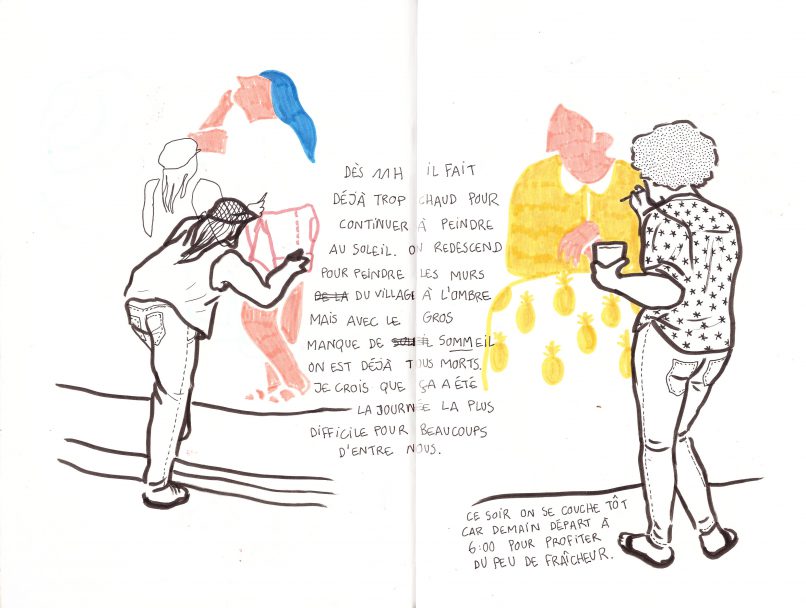 DÈS 11H IL FAIT
DÉJÀ TROP CHAUD POUR
CONTINUER À PEINDRE
AU SOLEIL. ON REDESCEND
POUR PEINDRE LES MURS
DE LA DU VILLAGE À L'OMBRE
MAIS AVEC LE GROS
MANQUE DE SOMMEIL
ON EST DÉJÀ TOUS MORTS.
JE CROIS QUE ÇA A ÉTÉ
LA JOURNÉE LA PLUS
DIFFICILE POUR BEAUCOUPS
D'ENTRE NOUS.
CE SOIR ON SE COUCHE TÔT
CAR DEMAIN DÉPART À
6:00 POUR PROFITER
DU PEU DE FRAÎCHEUR.